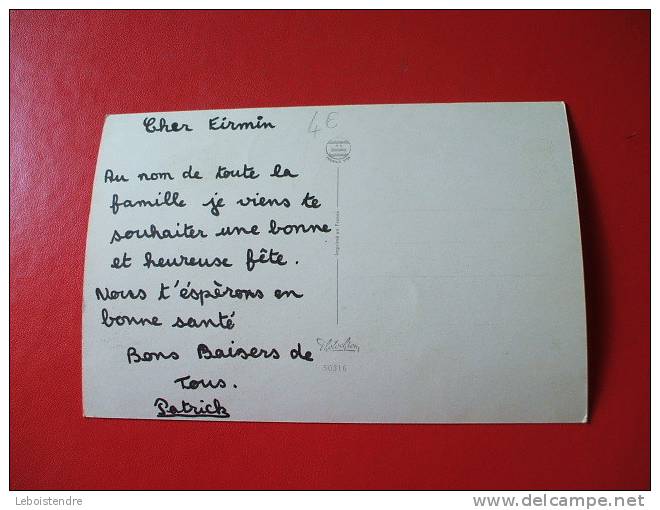 Cher Eirmin
4€
Au nom de toute la
famille je viens te
souhaiter une bonne
et heureuse fête.
Nous t'éspèrons en
bonne santé
Bons Baisers de
Tous.
Patrick
Imprimé en France
50316
Leboistendre
www.delcampe.net